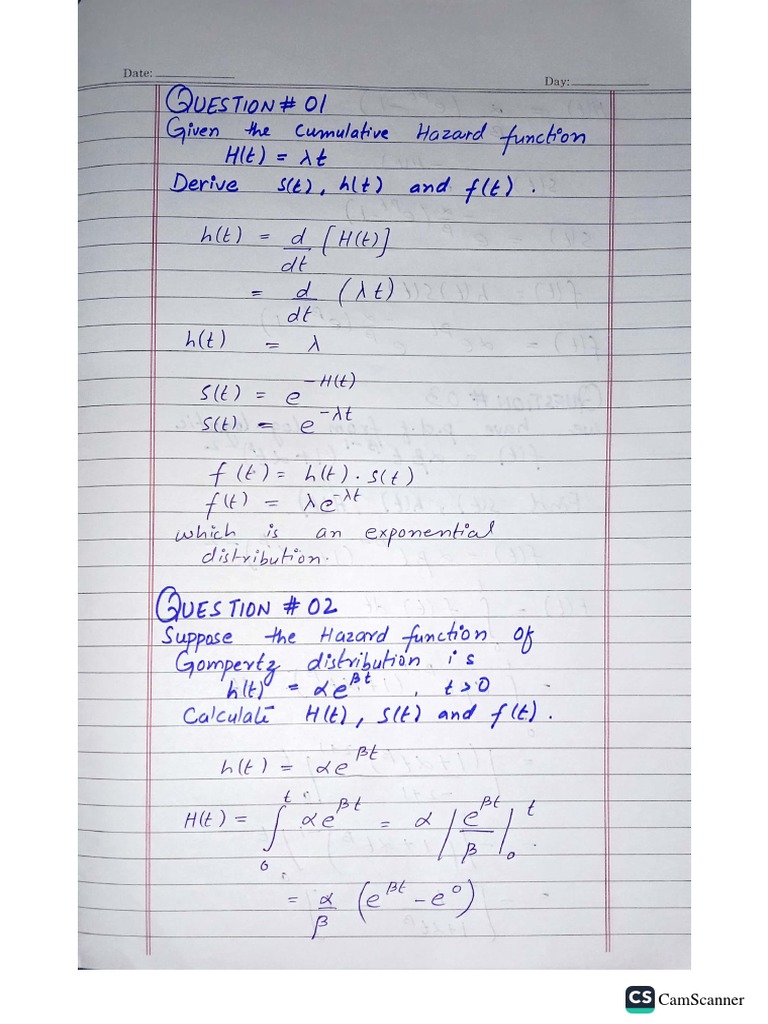 Date:
Day:
QUESTION # 01
Given the Cumulative Hazard function
H(t) = λt
Derive S(t), h(t) and f(t).
h(t) = d/dt [H(t)]
= d/dt (λt)
h(t) = λ
S(t) = e^{-H(t)}
S(t) = e^{-λt}
f(t) = h(t).S(t)
f(t) = λe^{-λt}
which is an exponential
distribution.
QUESTION # 02
Suppose the Hazard function of
Gompertz distribution is
h(t) = αe^{βt}, t>0
Calculate H(t), S(t) and f(t).
h(t) = αe^{βt}
H(t) = ∫_0^t αe^{βt} = α |e^{βt}/β|_0^t
= α/β (e^{βt} - e^0)
CS CamScanner